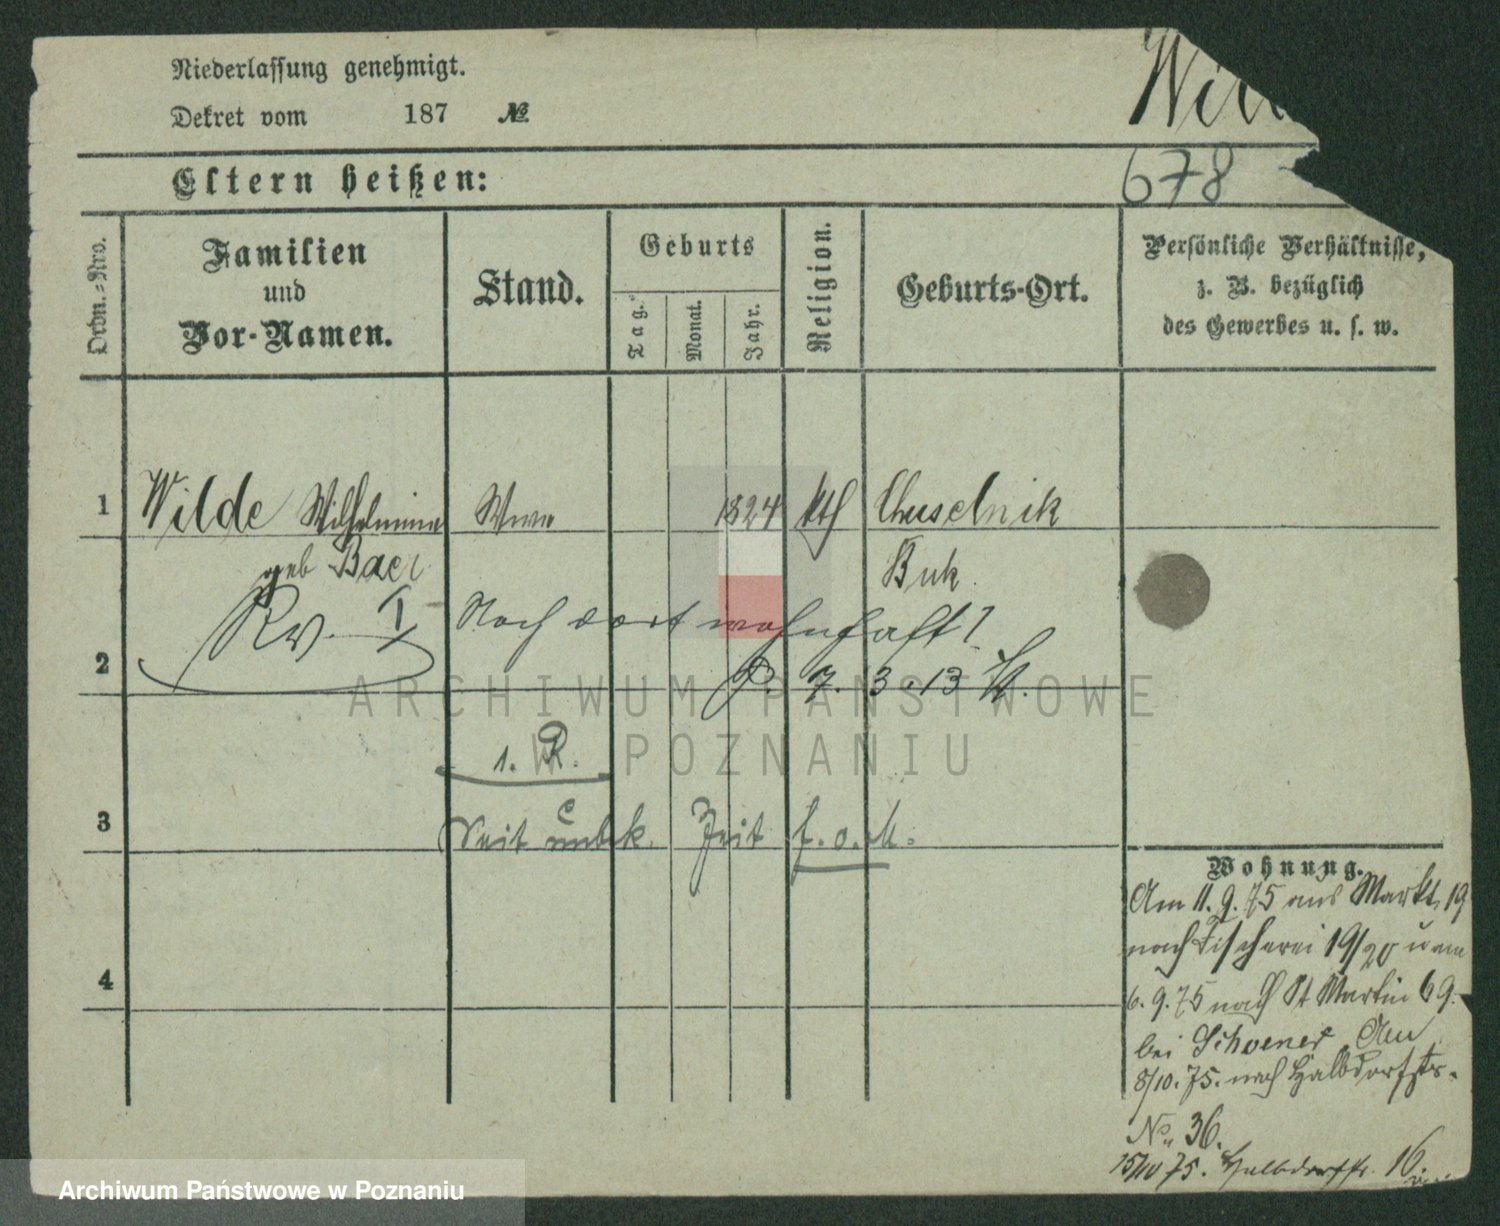 Niederlassung genehmigt.
Dekret vom 187 №
Wil
Eltern heißen:
678
Ordn.=Nro.
Familien und Vor-Namen.
Stand.
Geburts
Tag.
Monat.
Jahr.
Religion.
Geburts-Ort.
Persönliche Verhältnisse,
z. B. bezüglich
des Gewerbes u. s. w.
1 Wilde Wilhelmine Wwe 1824 kth Chuselnik
geb Baer Buk.
Rv. I
Noch dort wohnhaft?
2
P. 7. 3 13
1. R.
3 Seit unbek. Zeit f. o. M.
4
Wohnung.
Am 11.9.75 aus Markt 19
nach Fischerei 19/20 u am
6.9.75 nach St Martin 69.
bei Schoener Am
8/10.75. nach Halbdorfstr.
No. 36.
15/10 75. Halbdorfstr. 16.
ARCHIWUM PAŃSTWOWE
W POZNANIU
Archiwum Państwowe w Poznaniu